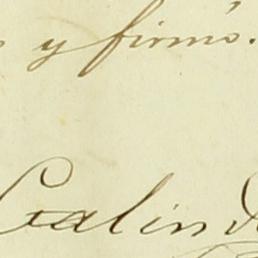 y firmó.
Galind